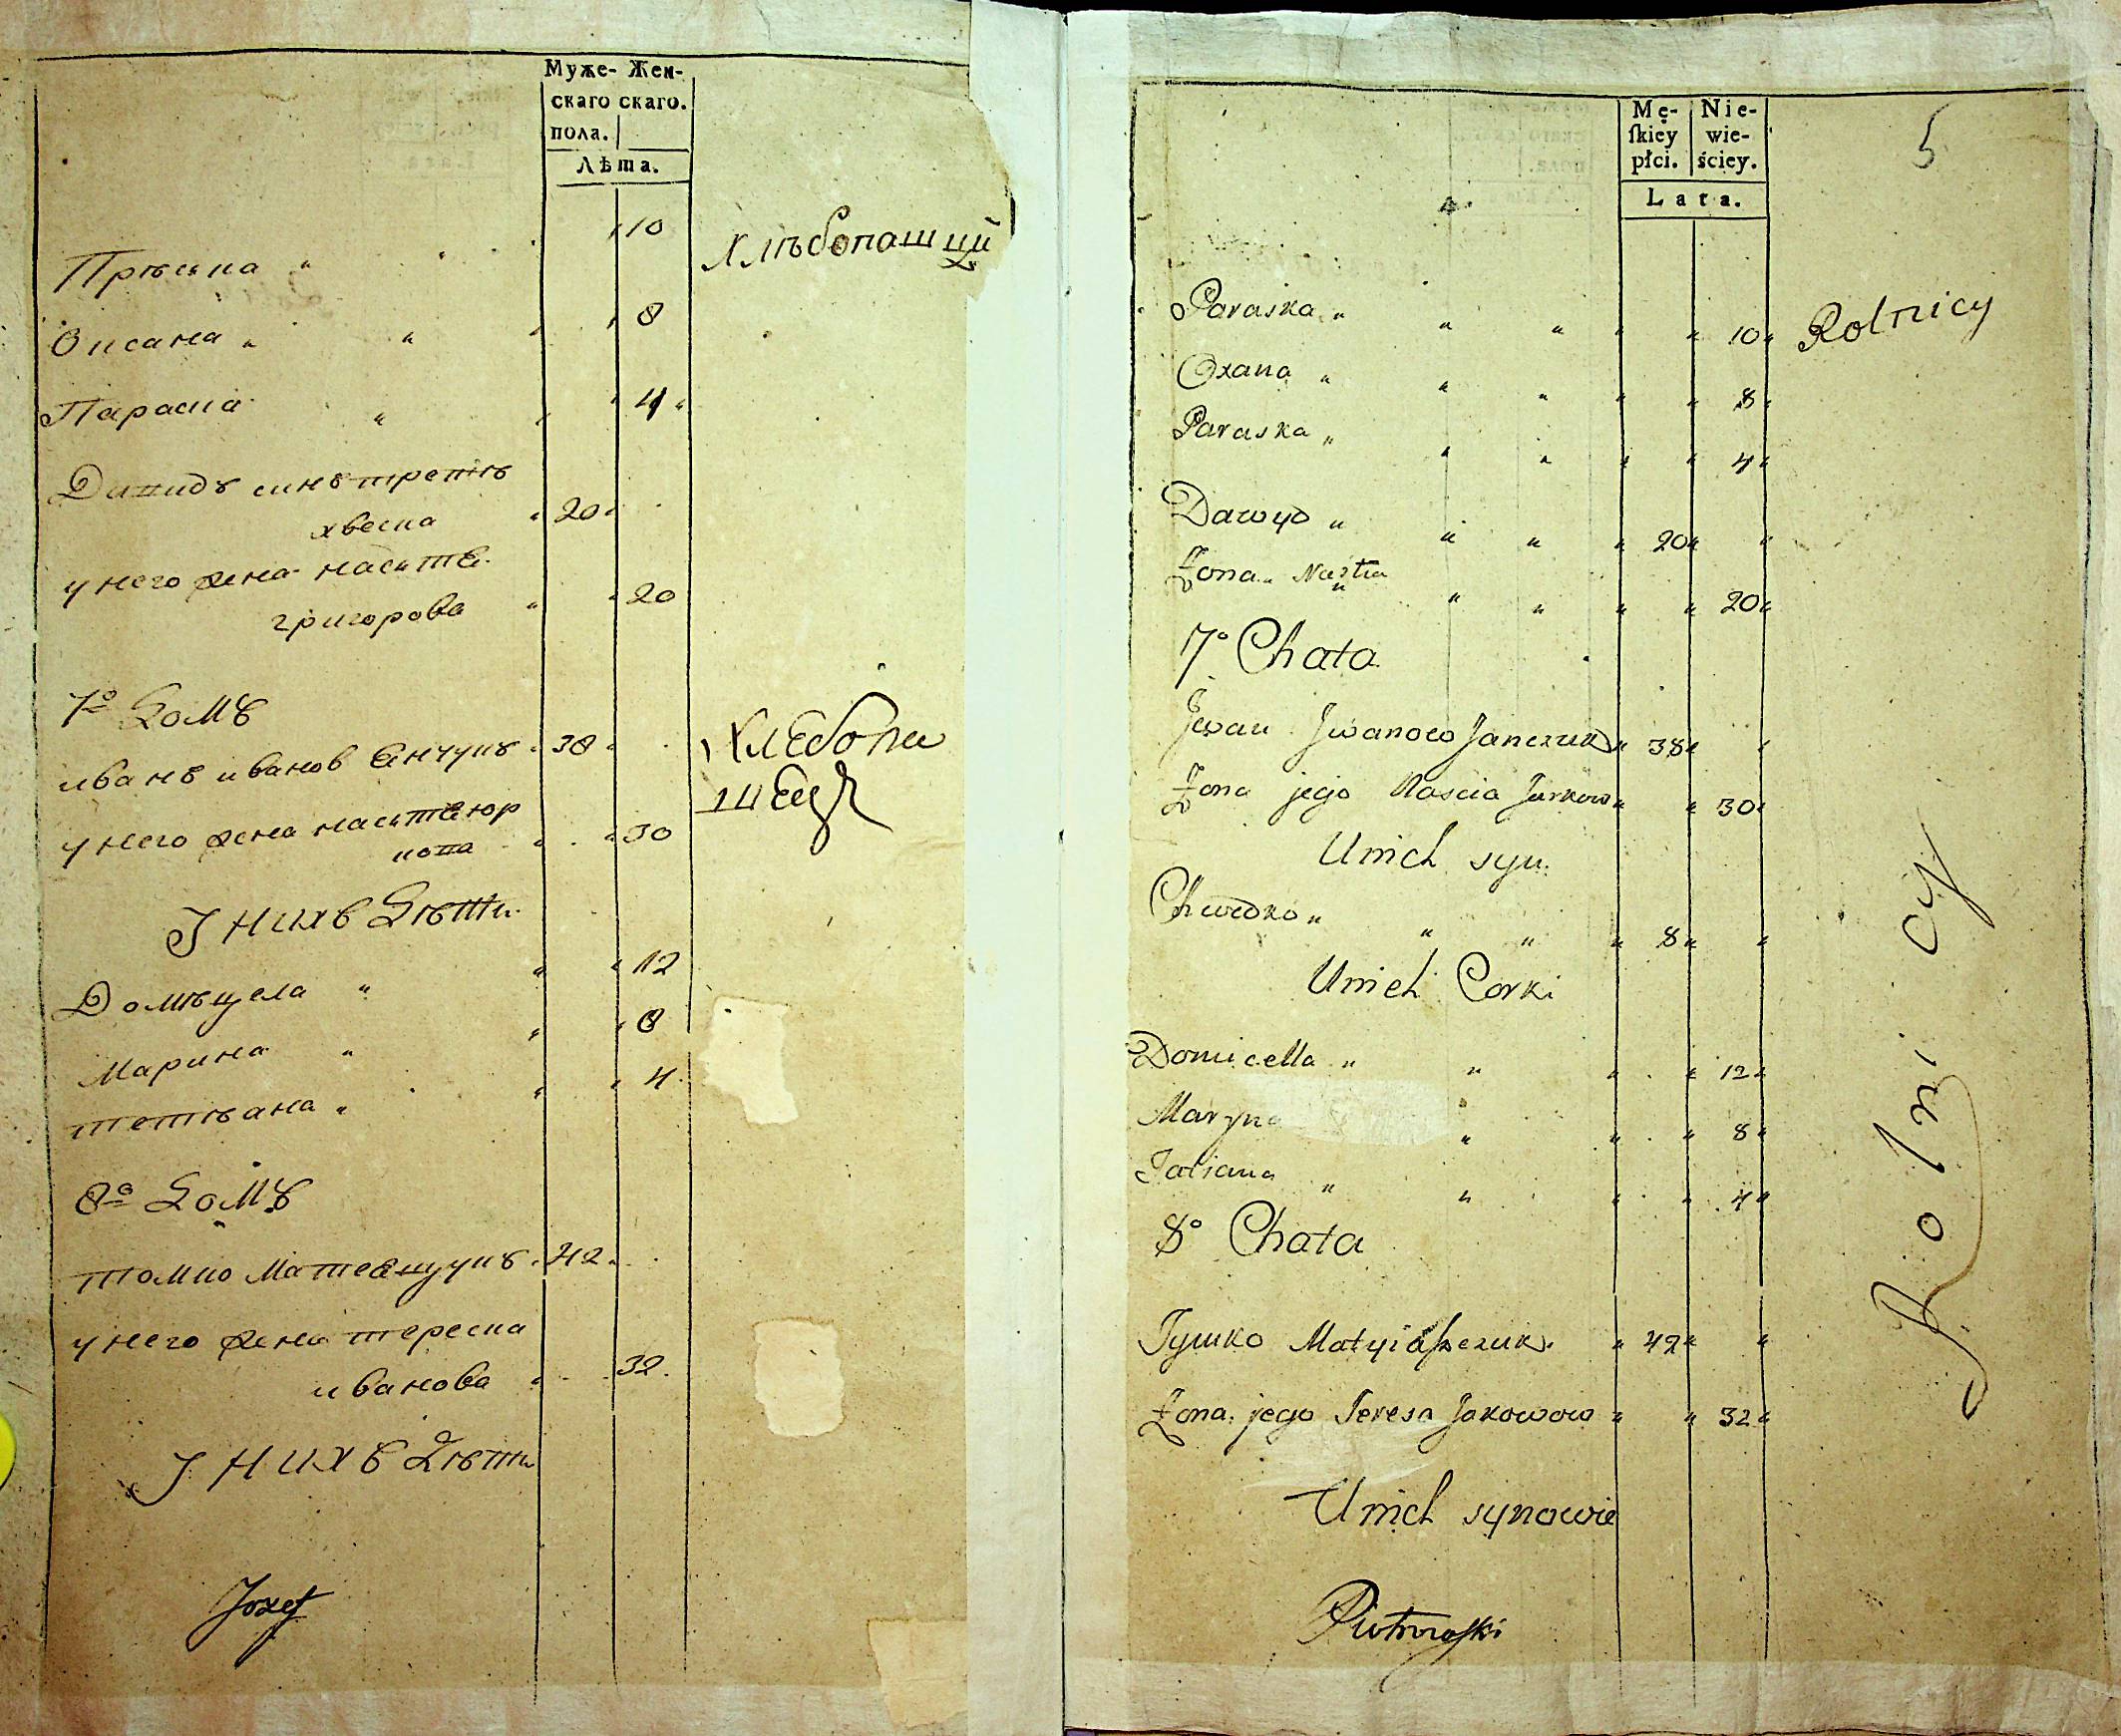 Муже- Жен-
скаго скаго.
пола.
Лѣта.
Прѣська " " " 10 Хлѣбопашцы
Оксана " " " 8
Параска " " 4
Давидъ синъ третѣ
хвеска " 20
у него жена настя
григорова " " 20
7º Домъ
иванъ иванов Янчукъ " 38 Хлебопа
шецъ
у него жена настя юр
кова " " 30
У нихъ Дѣти
Домѣцела " " " 12
Марина " " " 8
тетѣана " " " 4
8º Домъ
томко Матвящукъ 42
у него жена тереска
иванова " 32
У нихъ Дѣти
Jozef
Mę- Nie-
ſkiey wie-
płci. ściey.
Lata.
5
Paraska " " " " " 10 Rolnicy
Oxana " " " " " 8
Paraska " " " " " 4
Dawyd " " " " 20 "
Żona " Nastia " " " " 20
7º Chata
Jwan Jwanow Janczuk " 38 "
Żona jego Nascia Jurkow " " 30
U nich syn
Chwedko " " " " 8 "
U nich Corki
Domicella " " " " 12
Maryna " " " 8
Tatiana " " " " 4
8º Chata
Tymko Matyiaſzczuk " 42 "
Żona jego Teresa Jakowow " " 32
U nich synowie
Rolnicy
Piotrowſki